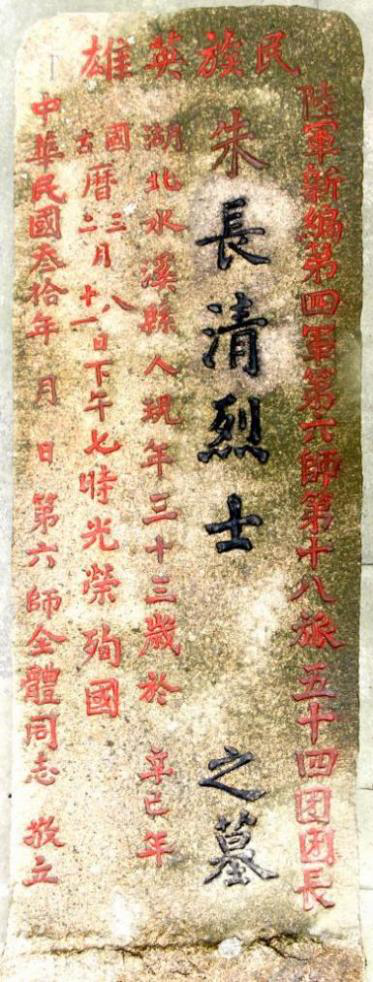 民族英雄
陸軍新編第四軍第六師第十八旅五十四团团長
朱長清烈士之墓
湖北水溪縣人現年三十三歲於辛巳年
國古曆三二月八十一日下午七時光榮殉國
中華民國叁拾年 月 日 第六師全體同志 敬立